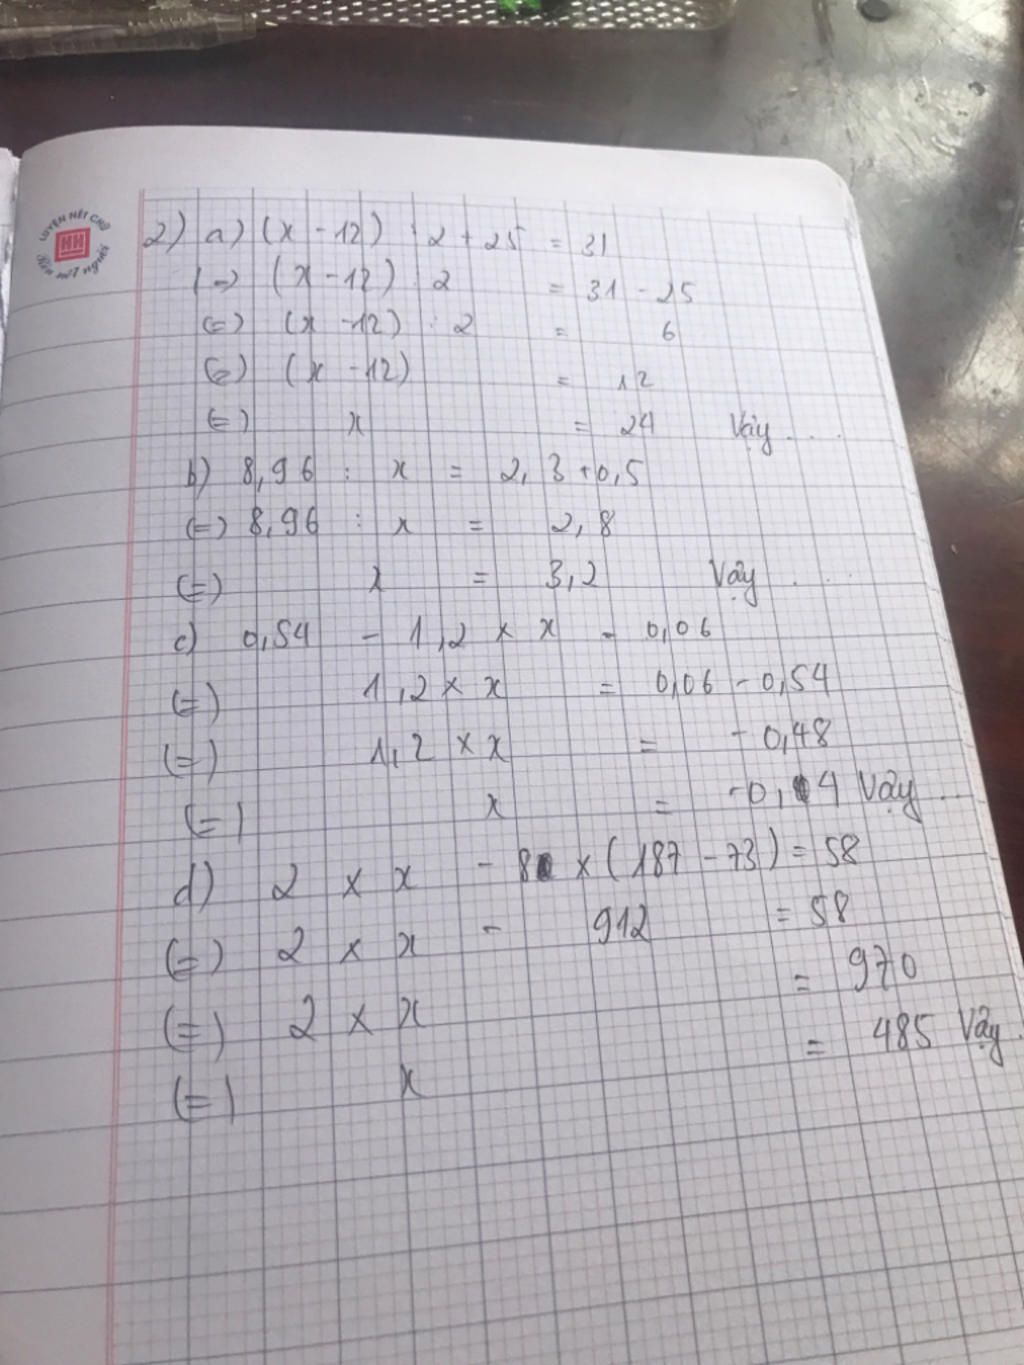 LUYỆN NÉT CHỮ
HH
Rèn nết người
2) a) (x - 12) : 2 + 25 = 31
(=) (x - 12) : 2 = 31 - 25
(=) (x - 12) : 2 = 6
(=) (x - 12) = 12
(=) x = 24 Vậy ....
b) 8,96 : x = 2,3 + 0,5
(=) 8,96 : x = 2,8
(=) x = 3,2 Vậy ...
c) 0,54 - 1,2 × x = 0,06
(=) 1,2 × x = 0,06 - 0,54
(=) 1,2 × x = - 0,48
(=) x = -0,4 Vậy ..
d) 2 × x - 8 × (187 - 73) = 58
(=) 2 × x - 912 = 58
(=) 2 × x = 970
(=) x = 485 Vậy.